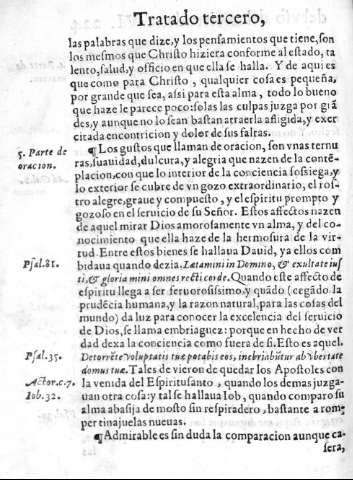 Tratado tercero,
las palabras que dize, y los pensamientos que tiene, son
los mesmos que Christo hiziera conforme al estado, ta
lento, salud, y officio en que ella se halla. Y de aqui es
que como para Christo, qualquier cosa es pequeña,
por grande que sea, assi para esta alma, todo lo bueno
que haze le parece poco: solas las culpas juzga por grã
des, y aunque no lo sean bastan atraerla afligida, y exer
citada en contricion y dolor de sus faltas.
5. Parte de
oracion.
¶ Los gustos que llaman de oracion, son vnas ternu
ras, suauidad, dulçura, y alegria que nazen de la contẽ-
placion, con que lo interior de la conciencia sossiega, y
lo exterior se cubre de vn gozo extraordinario, el ros-
tro alegre, graue y compuesto, y el espiritu prompto y
gozoso en el seruicio de su Señor. Estos affectos nazen
de aquel mirar Dios amorosamente vn alma, y del co-
nocimiento que ella haze de la hermosura de la vir-
tud. Entre estos bienes se hallaua Dauid, ya ellos com
Psal. 81.
bidaua quando dezia. Lætamini in Domino, & exultate ius
ti, & gloriamini omnes recti corde. Quando este affecto de
espiritu llega a ser feruorosissimo, y quãdo (cegãdo la
prudẽcia humana, y la razon natural, para las cosas del
mundo) da luz para conocer la excelencia del seruicio
de Dios, se llama embriaguez: porque en hecho de ver
dad dexa la conciencia como fuera de si. Esto es aquel.
Psal. 35.
De torrẽte voluptatis tuæ potabis eos, inebriabũtur ab vbertate
domus tuæ. Tales de vieron de quedar los Apostoles con
Actor. c. 7.
la venida del Espiritusanto, quando los demas juzga-
Iob. 32.
uan otra cosa: y tal se hallaua Iob, quando comparo su
alma a basija de mosto sin respiradero, bastante a rom-
per tinajuelas nueuas.
¶ Admirable es sin duda la comparacion aunque ca-
sera,